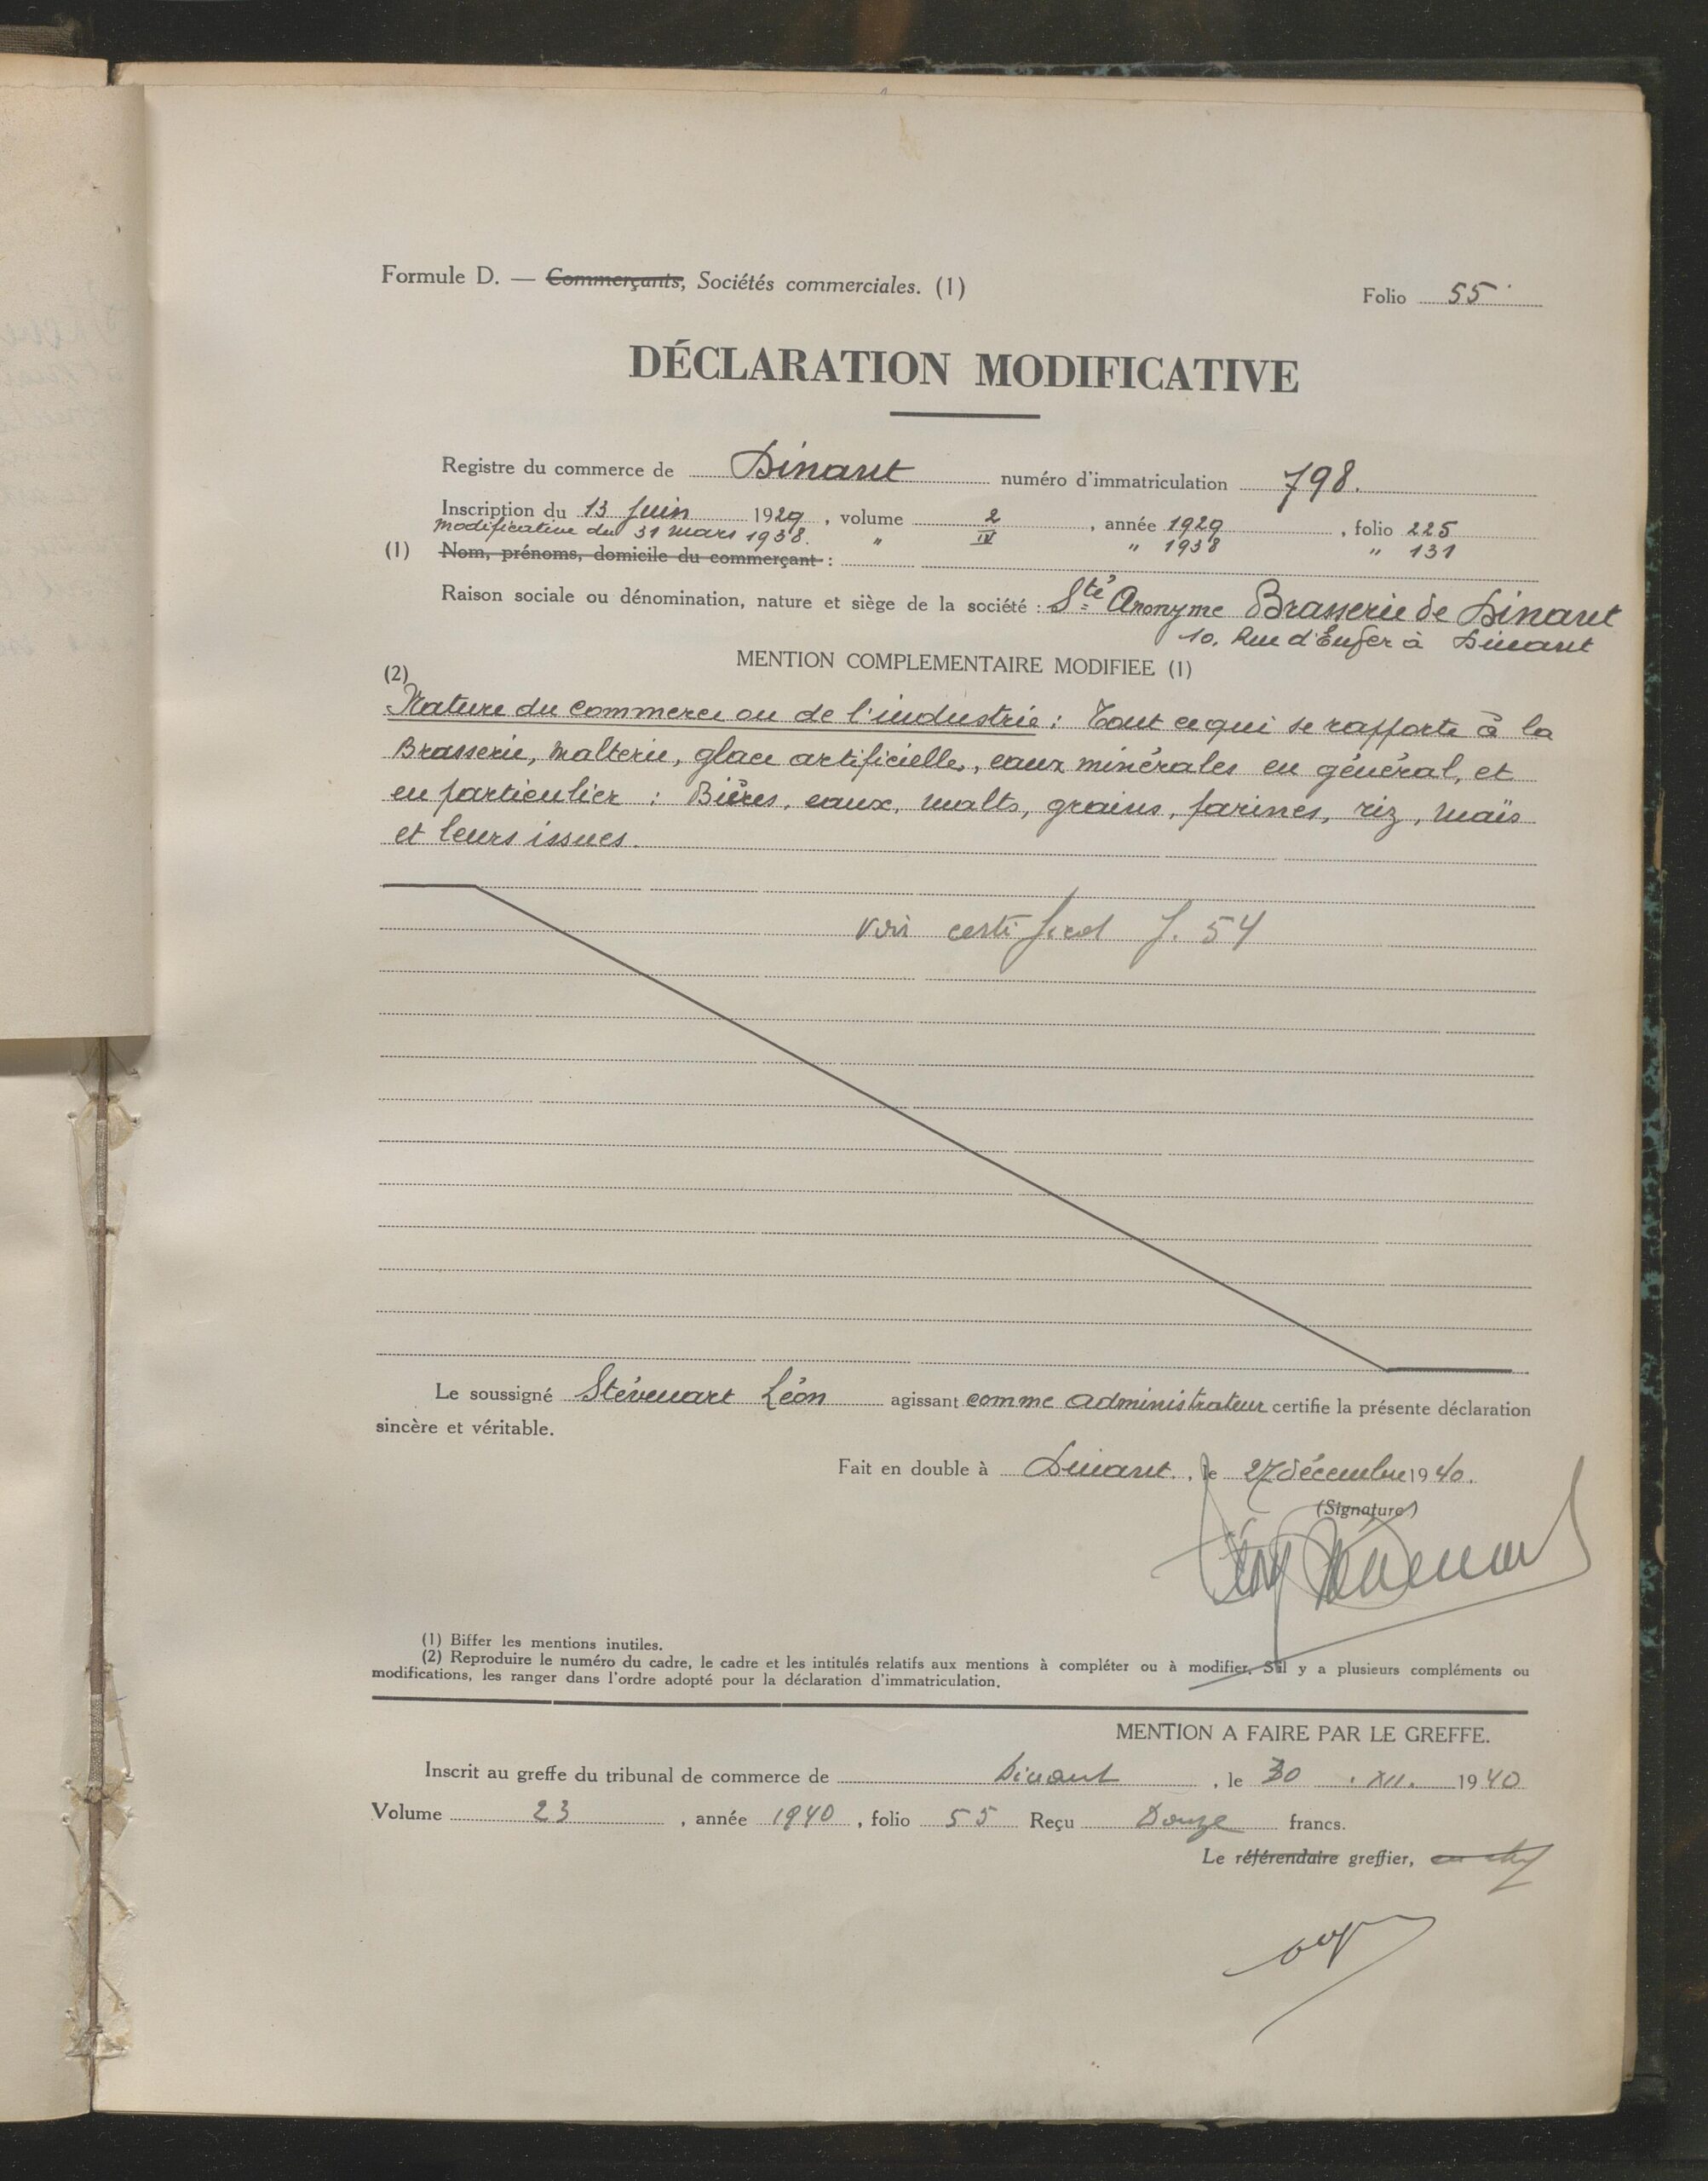 Formule D. — Commerçants, Sociétés commerciales. (1)
Folio 55
DÉCLARATION MODIFICATIVE
Registre du commerce de Dinant numéro d'immatriculation 798.
Inscription du 13 Juin 1929, volume 2, année 1929, folio 225
modificative du 31 mars 1938. " IV " 1938 " 131
(1) Nom, prénoms, domicile du commerçant :
Raison sociale ou dénomination, nature et siège de la société : Sté Anonyme Brasserie de Dinant
10, Rue d'Enfer à Dinant
MENTION COMPLEMENTAIRE MODIFIEE (1)
(2)
Nature du commerce ou de l'industrie : Tout ce qui se rapporte à la
Brasserie, Malterie, glace artificielle, eaux minérales en général, et
en particulier : Bières, eaux, malts, grains, farines, riz, maïs
et leurs issues.
voir certificat f. 54
Le soussigné Stévenart Léon agissant comme administrateur certifie la présente déclaration
sincère et véritable.
Fait en double à Dinant, le 27 décembre 1940.
(Signature)
Léon Stévenart
(1) Biffer les mentions inutiles.
(2) Reproduire le numéro du cadre, le cadre et les intitulés relatifs aux mentions à compléter ou à modifier. S'il y a plusieurs compléments ou
modifications, les ranger dans l'ordre adopté pour la déclaration d'immatriculation.
MENTION A FAIRE PAR LE GREFFE.
Inscrit au greffe du tribunal de commerce de Dinant, le 30 . XII. 1940
Volume 23, année 1940, folio 55 Reçu Douze francs.
Le référendaire greffier,